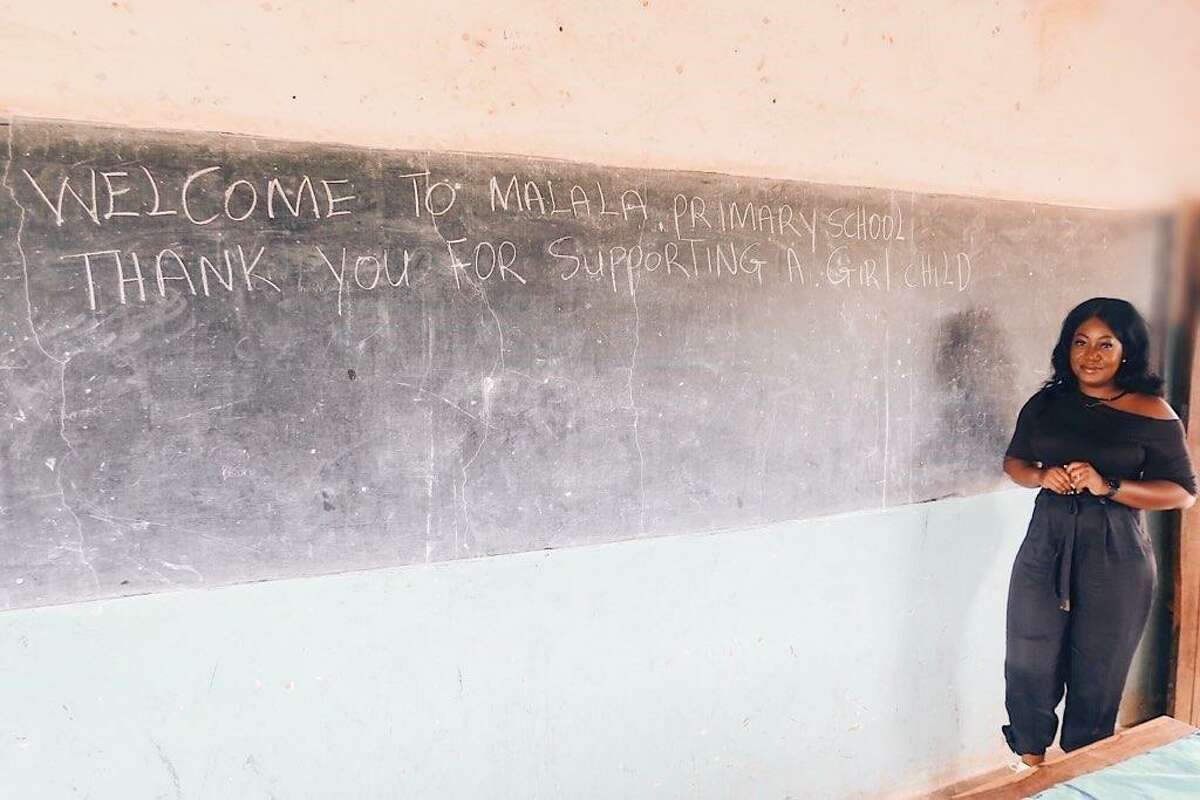 WELCOME TO MALALA PRIMARY SCHOOL
THANK YOU FOR SUPPORTING A GIRL CHILD